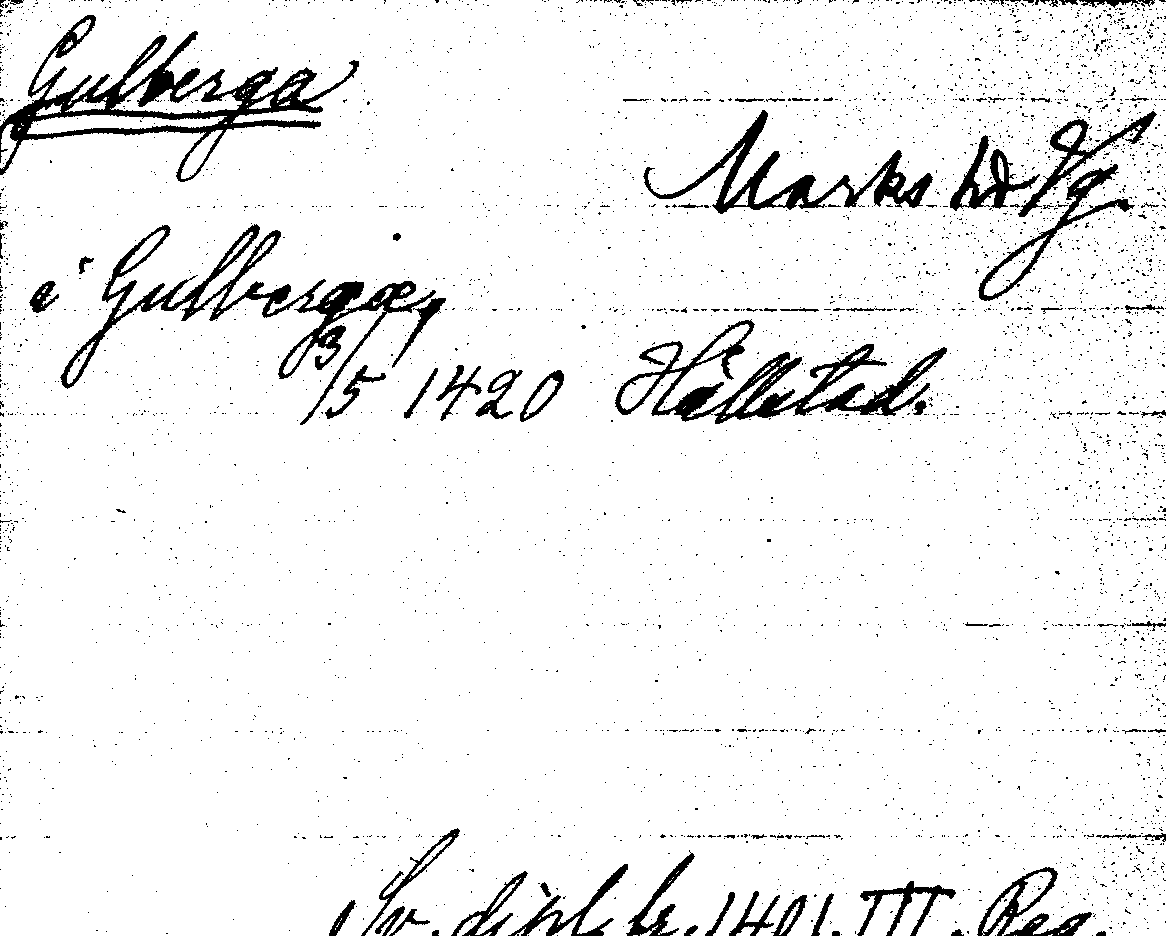 Gulberga
Marks hd Vg.
i Gullbergæ,
3/5 1420 Hällstad.
Sv. dipl. fr. 1401. III. Reg.